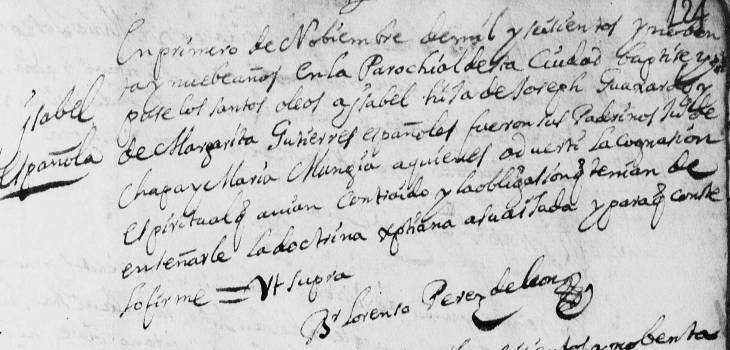 124
En primero de Nobiembre de mil y seisientos y noben
ta y nuebe años en la Parochial desta Ciudad baptise y
puse los santos oleos a ysabel hija de Joseph Guaxardo y
de Margarita Gutierres españoles fueron sus Padrinos Ju.º de
Chapa y Maria Mungia a quienes adverti la cognasion
espiritual q avian Contraido y la obligasion q tenian de
enseñarle la doctrina xptiana a su aijada y para q conste
lo firme = Vt supra
Br Lorenso Perez de leon
ysabel
española
y nobenta